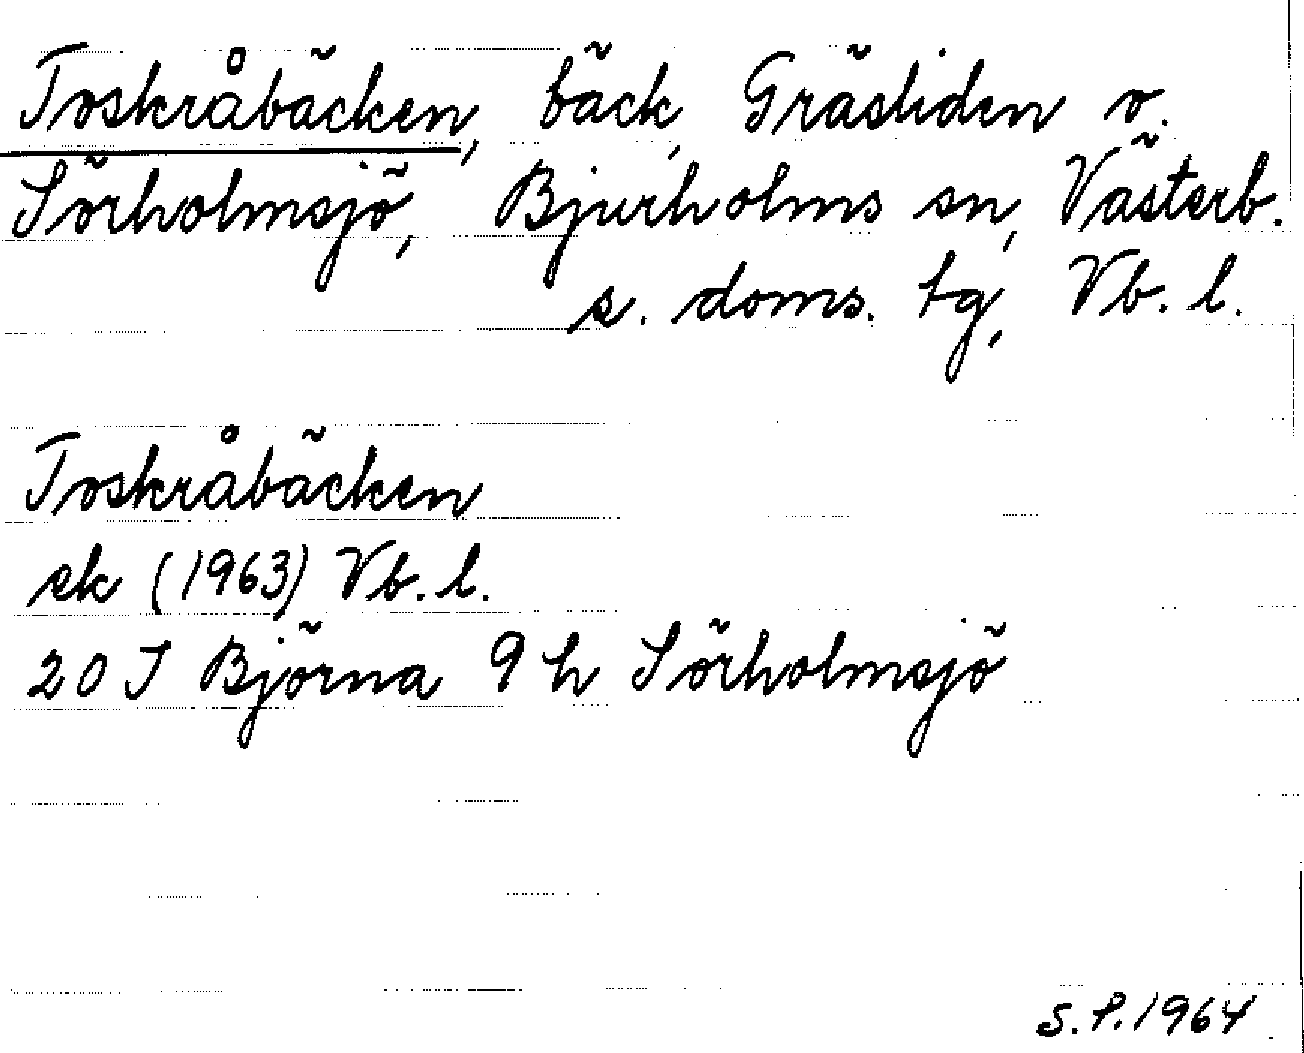 Toskråbäcken, bäck, Gräsliden o.
Sörholmsjö, Bjurholms sn, Västerb.
s. doms. tg, Vb. l.
Toskråbäcken
ek (1963) Vb. l.
20 I Björna 9 h Sörholmsjö
S.P. 1964